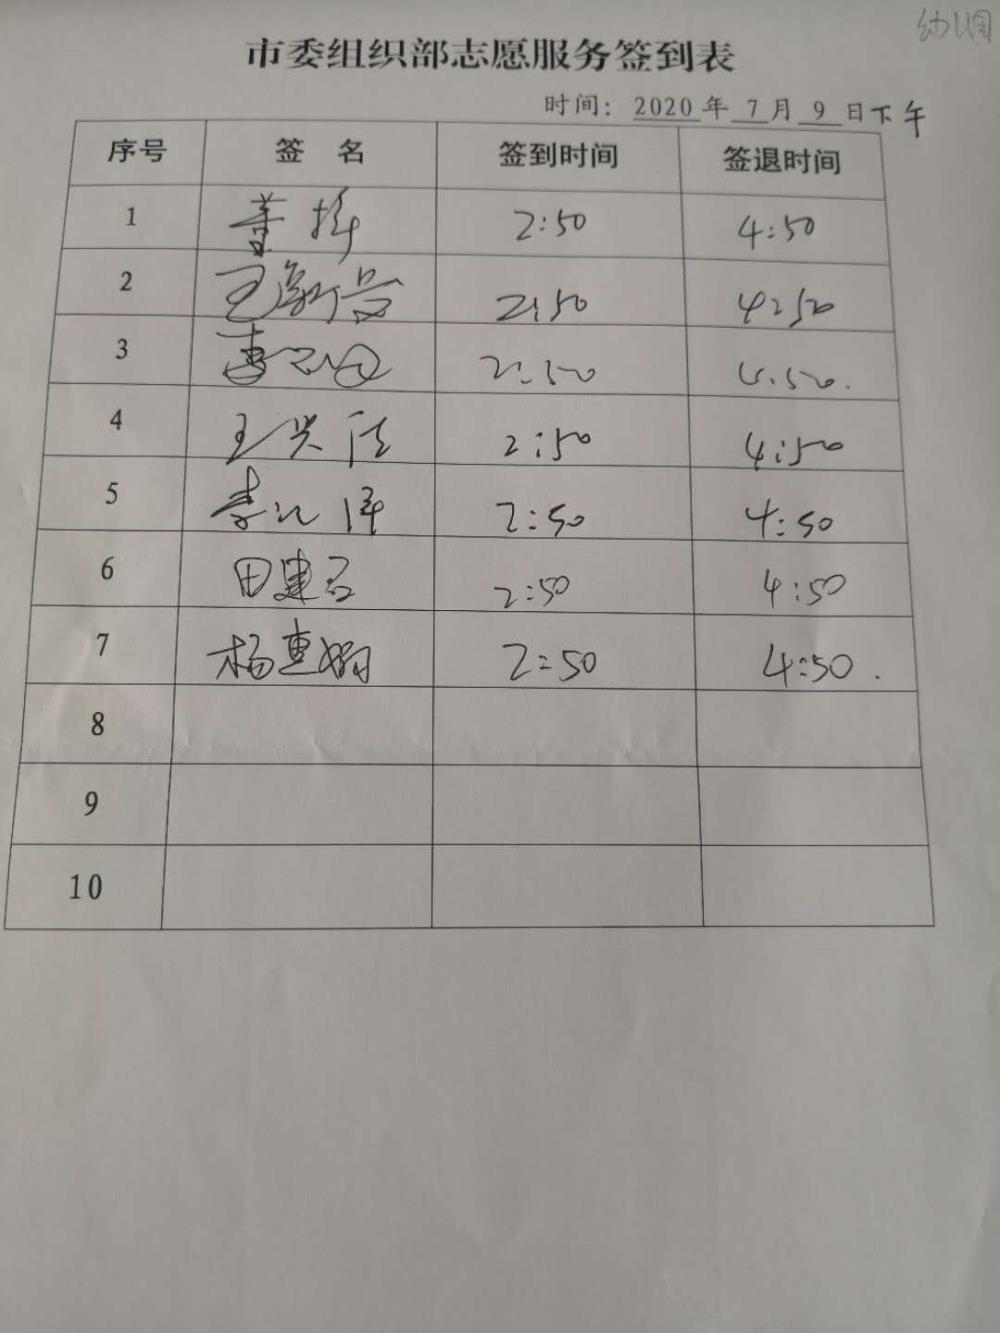 幼儿园
市委组织部志愿服务签到表
时间: 2020 年 7 月 9 日下午
序号 签 名 签到时间 签退时间
1 董 2:50 4:50
2 王 2:50 4:50
3 2:50 4:50.
4 王兴 2:50 4:50
5 李 2:50 4:50
6 田建 2:50 4:50
7 杨惠娟 2:50 4:50.
8
9
10